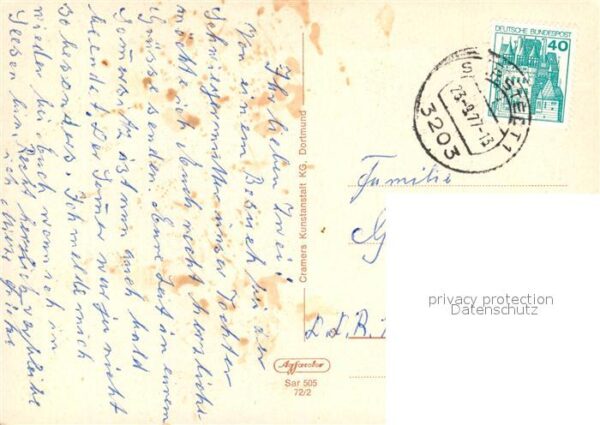 Ihr lieben Zwei!
Von einem Besuch bei der
Schwiegermutter uns'rer Tochter
möchte ich Euch recht herzliche
Grüsse senden. Eure Zeit in einem
Sommersitz ist nun auch bald
zu Ende. Der Sommer war ja nicht
so besonders. Ich melde mich
wieder bei Euch wenn ich in
Seesen bin. Recht herzlich
ich Eure
Cramers Kunstanstalt KG, Dortmund
Agfacolor
Sar 505
72/2
DEUTSCHE BUNDESPOST
40
23.-9.77-13
3203
Familie
G
privacy protection
Datenschutz